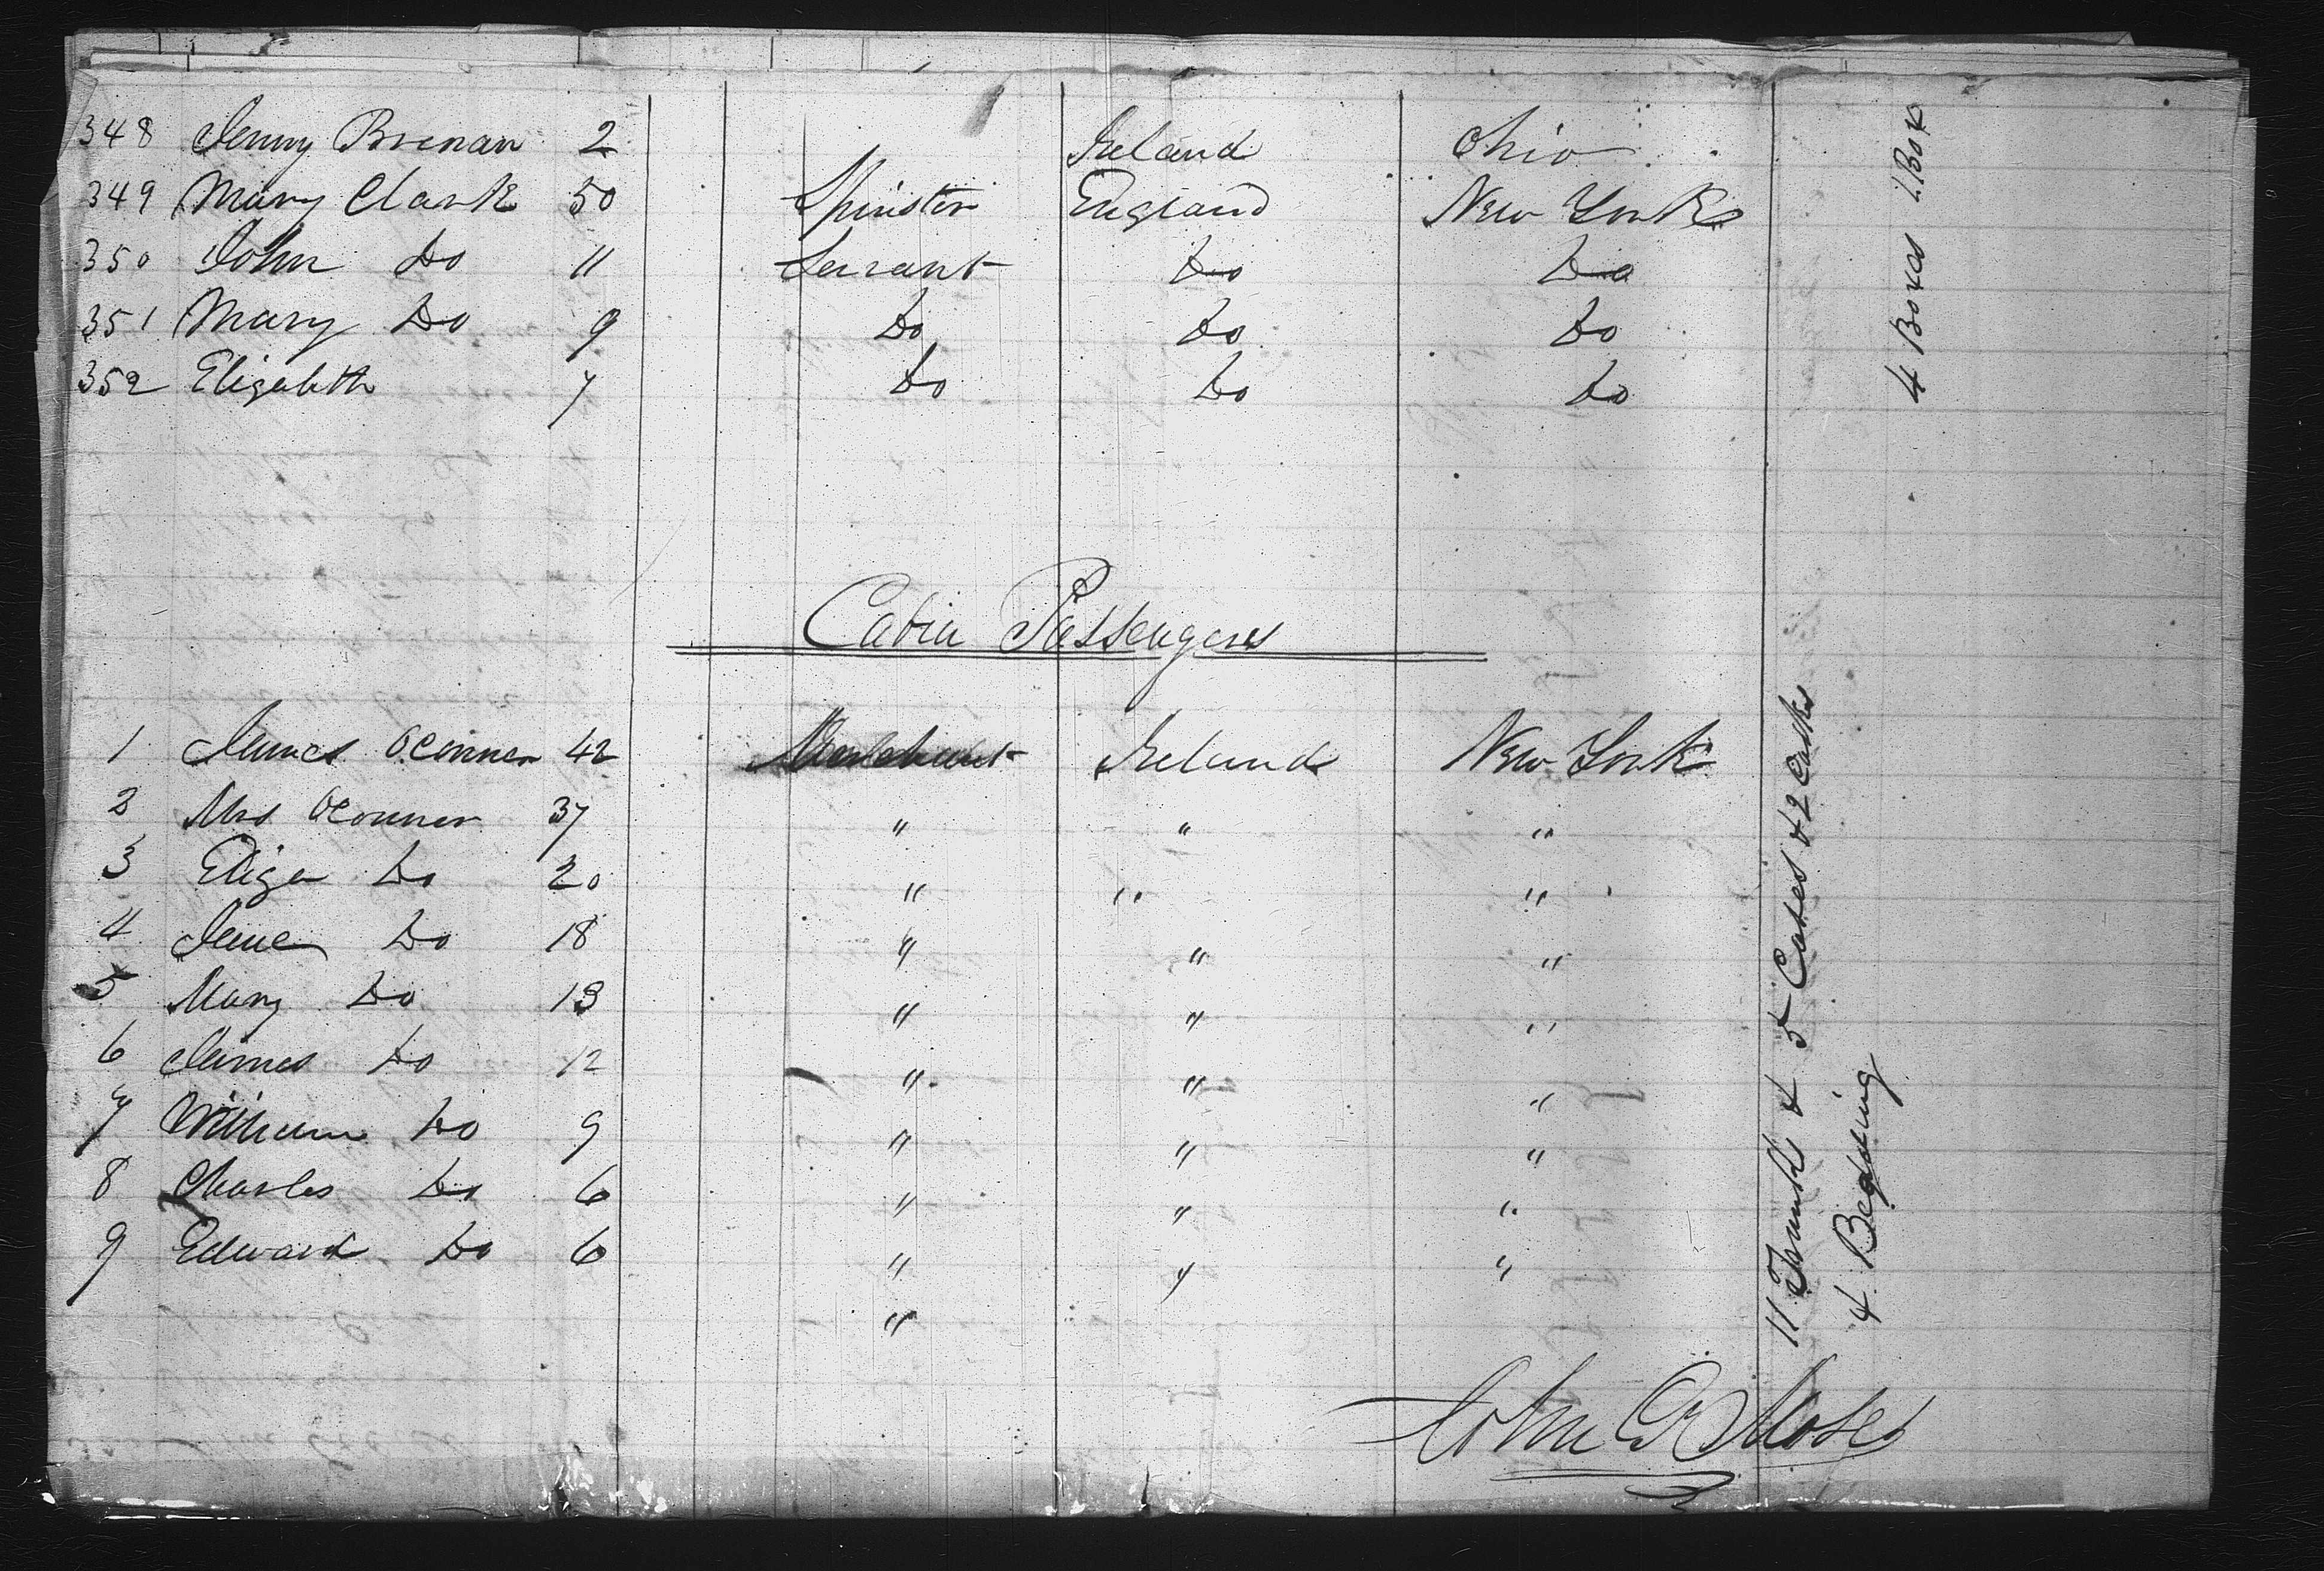 348 Jenny Brenan 2 Ireland Ohio
349 Mary Clark 50 Spinster England New York
350 John Do 11 Servant Do Do
351 Mary Do 9 Do Do Do
352 Elizabeth 7 Do Do Do
4 Boxes 1 Box
Cabin Passengers
1 James OConner 42 Merchant Ireland New York
2 Mrs OConner 37 " " "
3 Eliza Do 20 " " "
4 Jane Do 18 " " "
5 Mary Do 13 " " "
6 James Do 12 " " "
7 William Do 9 " " "
8 Charles Do 6 " " "
9 Edward Do 6 " " "
"
11 Trunks & 5 Cases & 2 Casks
4 Bedding
John Moses